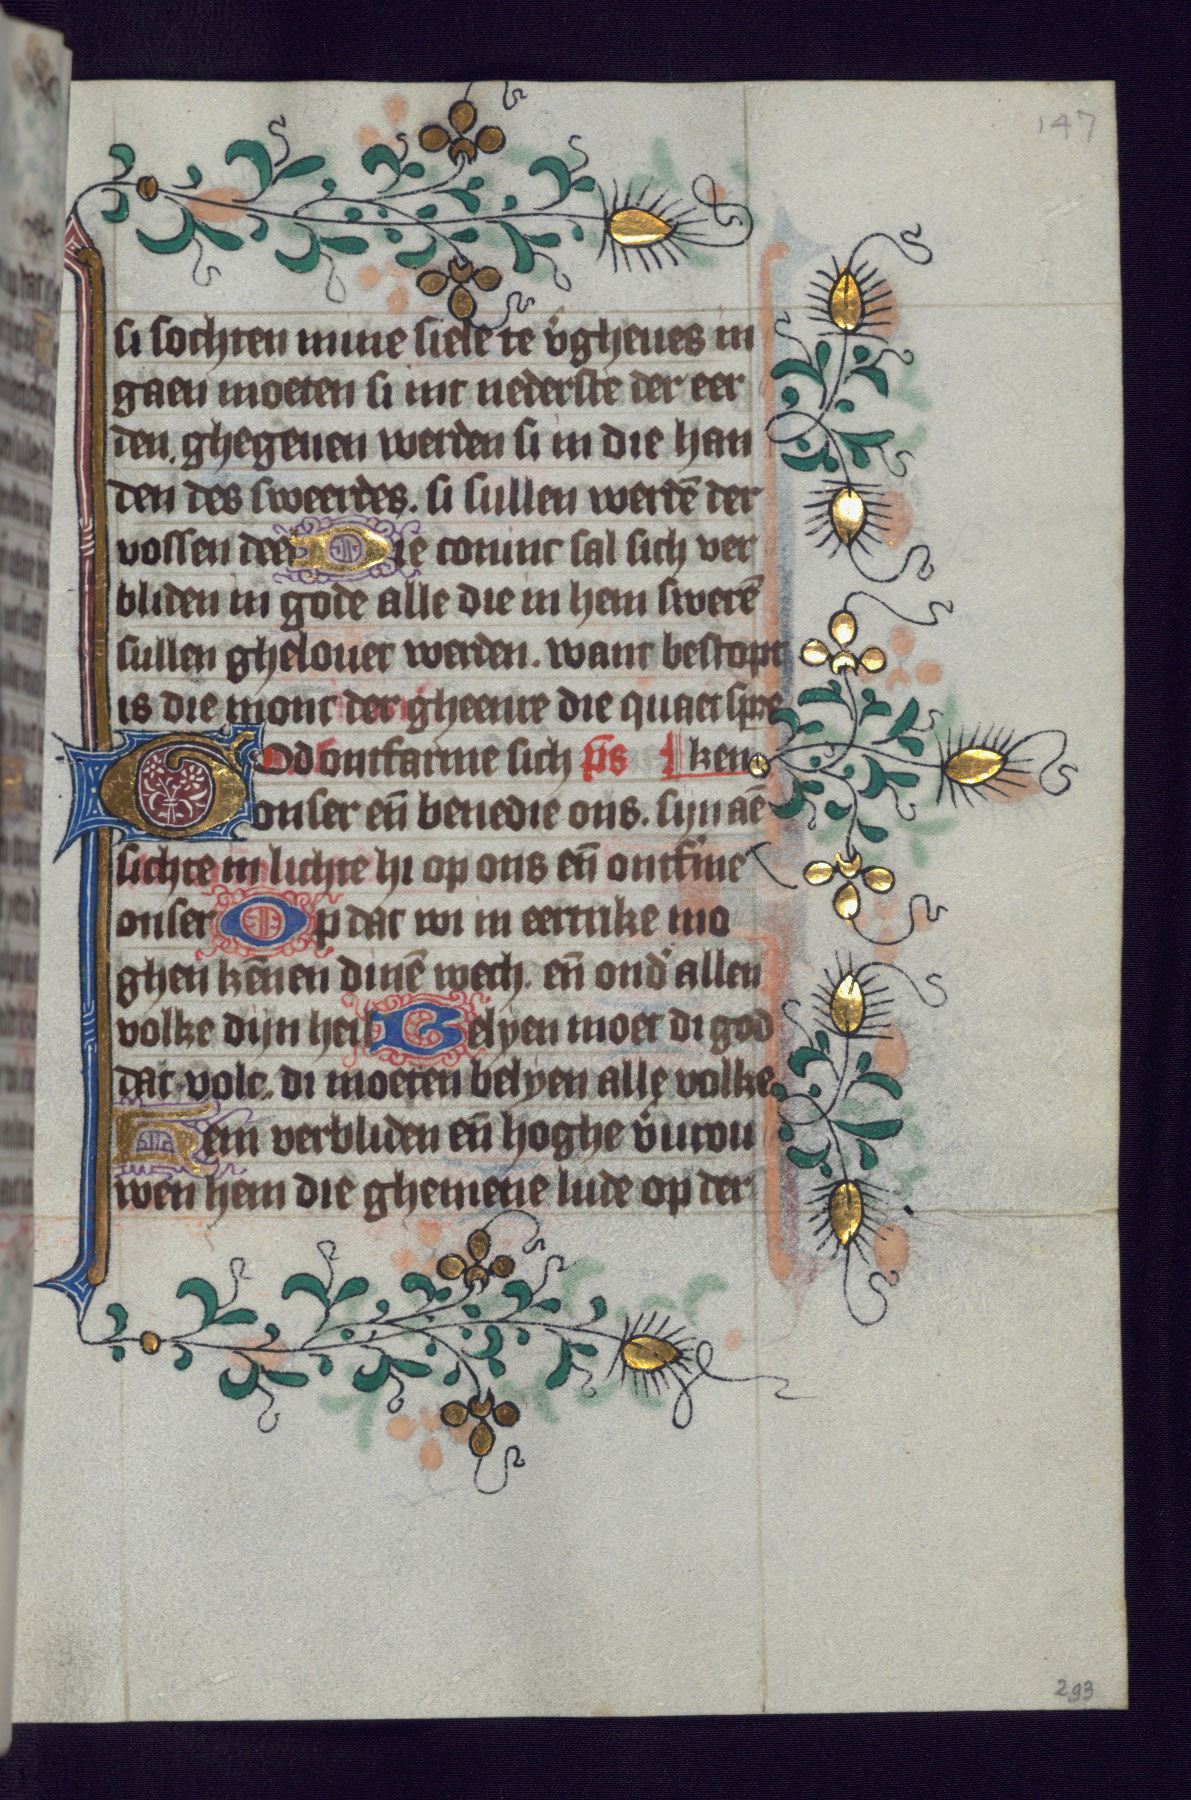 147
si sochten mine siele te v̉gheues in
gaen moeten si int nederste der eer
den. ghegeuen werden si in die han
den des sweerdes. si sullen werdē der
vossen deel Die coninc sal sich ver
bliden in gode alle die in hem swerē
sullen ghelouet werden. want bestopt
is die mont der gheenre die quaet spre
God ontfarme sich p̄s ken
onser eñ benedie ons. sijn aē
sichte in lichte hi op ons eñ ontf'me
onser Op dat wi in eertrike mo
ghen kēnen dinē wech. eñ ond' allen
volke dijn heil Belyen moet di god
dat volc. di moeten belyen alle volke
Hem verbliden eñ hoghe v̉urou
wen hem die ghemene lude op der
293